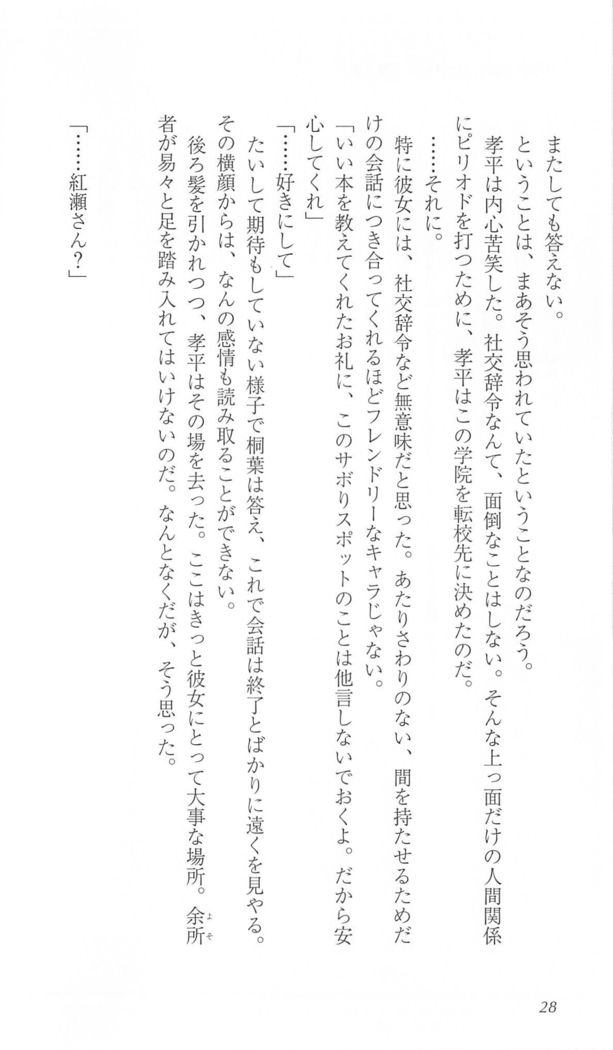 またしても答えない。
ということは、まあそう思われていたということなのだろう。
孝平は内心苦笑した。社交辞令なんて、面倒なことはしない。そんな上っ面だけの人間関係
にピリオドを打つために、孝平はこの学院を転校先に決めたのだ。
……それに。
特に彼女には、社交辞令など無意味だと思った。あたりさわりのない、間を持たせるためだ
けの会話につき合ってくれるほどフレンドリーなキャラじゃない。
「いい本を教えてくれたお礼に、このサボりスポットのことは他言しないでおくよ。だから安
心してくれ」
「……好きにして」
たいして期待もしていない様子で桐葉は答え、これで会話は終了とばかりに遠くを見やる。
その横顔からは、なんの感情も読み取ることができない。
後ろ髪を引かれつつ、孝平はその場を去った。ここはきっと彼女にとって大事な場所。余所
よそ
者が易々と足を踏み入れてはいけないのだ。なんとなくだが、そう思った。
「……紅瀬さん？」
28